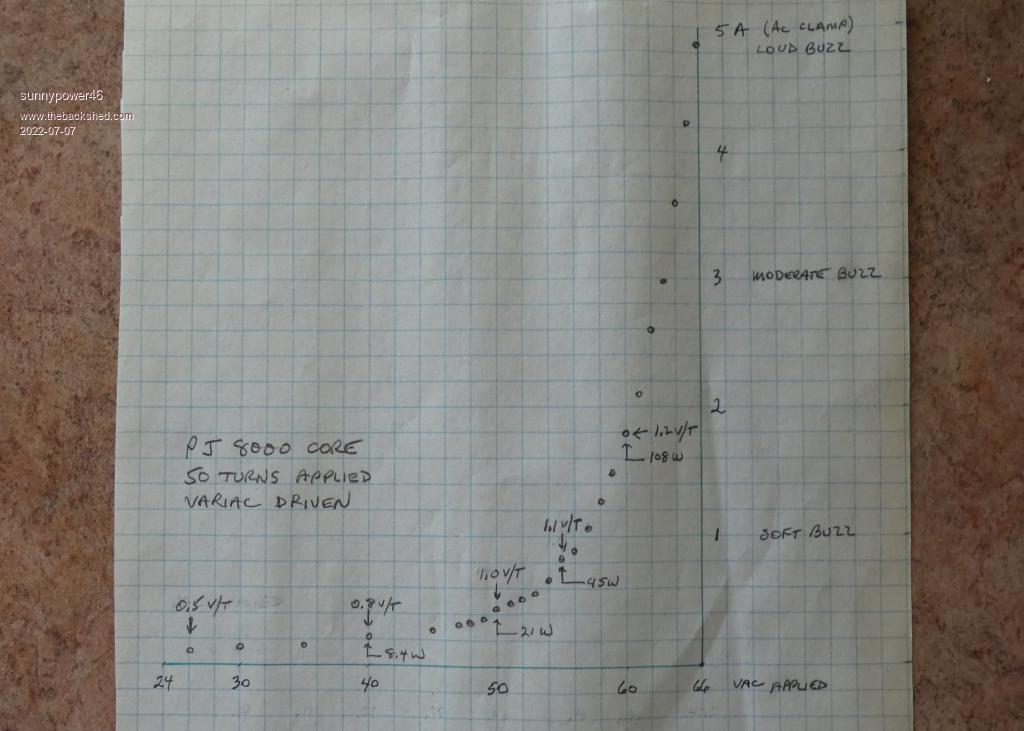 5 A (AC CLAMP)
LOUD BUZZ
sunnypower46
www.thebackshed.com
2022-07-07
4
3 MODERATE BUZZ
2
1.2 V/T
108 W
PJ 8000 CORE
50 TURNS APPLIED
VARIAC DRIVEN
1.1 V/T
1 SOFT BUZZ
1.0 V/T
45W
0.5 V/T
0.8 V/T
21 W
8.4 W
24 30 40 50 60 66 VAC APPLIED